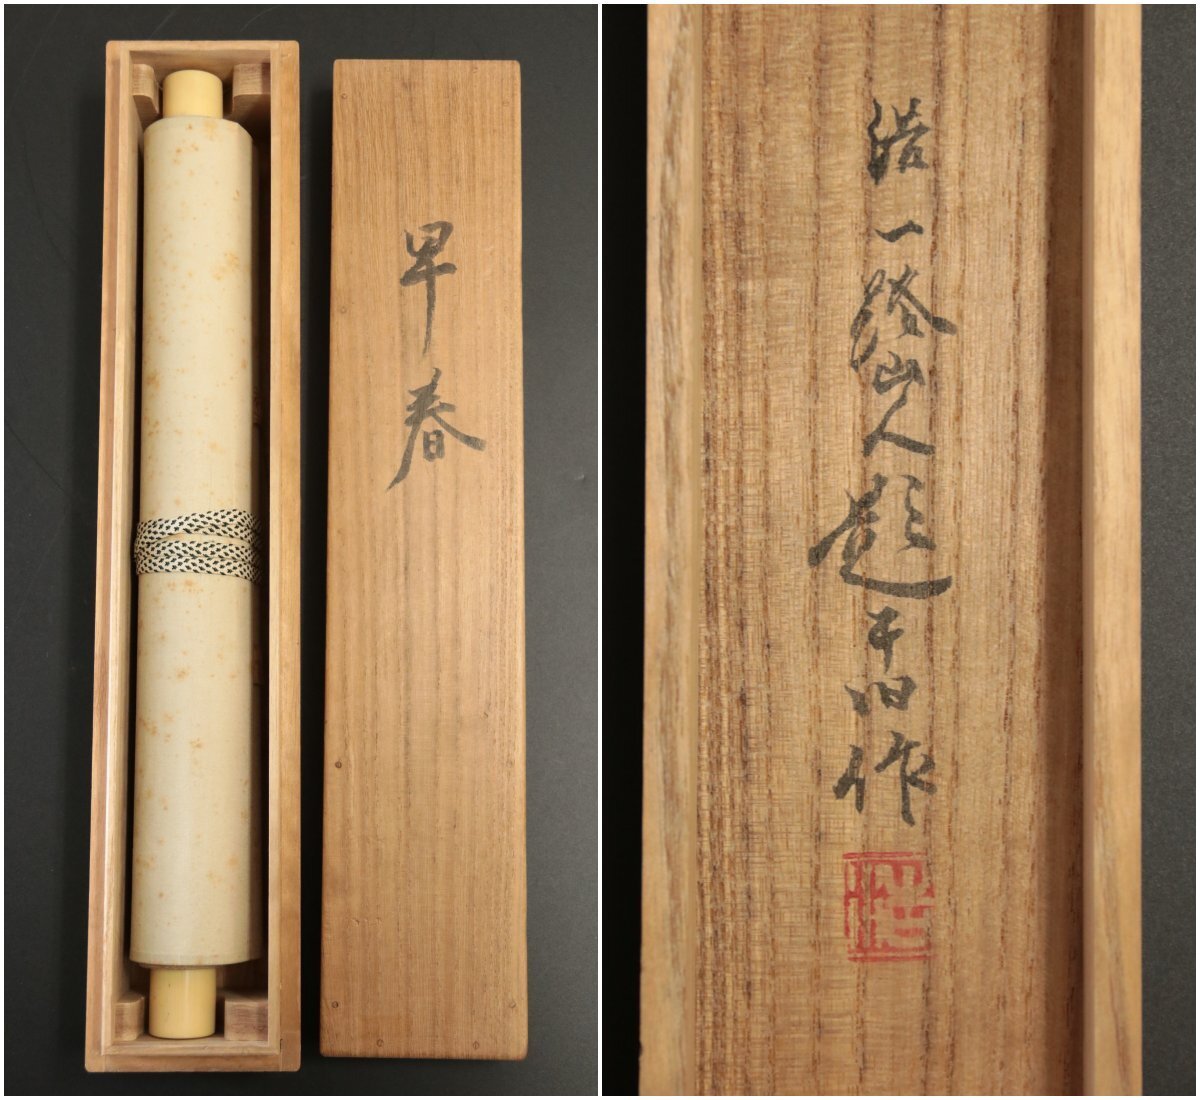 早春
浩一路山人題于旧作